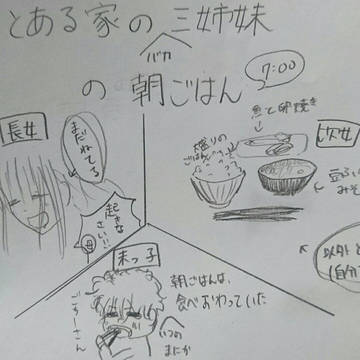 とある家の三姉妹
バカ
の朝ごはん
7:00
長女
まだねてる
起きな
さい!!
母
次女
魚と卵焼き
大盛りの
ごはん
豆ふ
みそ
以外と
(自分
末っ子
朝ごはんは、
食べおわっていた
いつの
まにか
ごちーさん